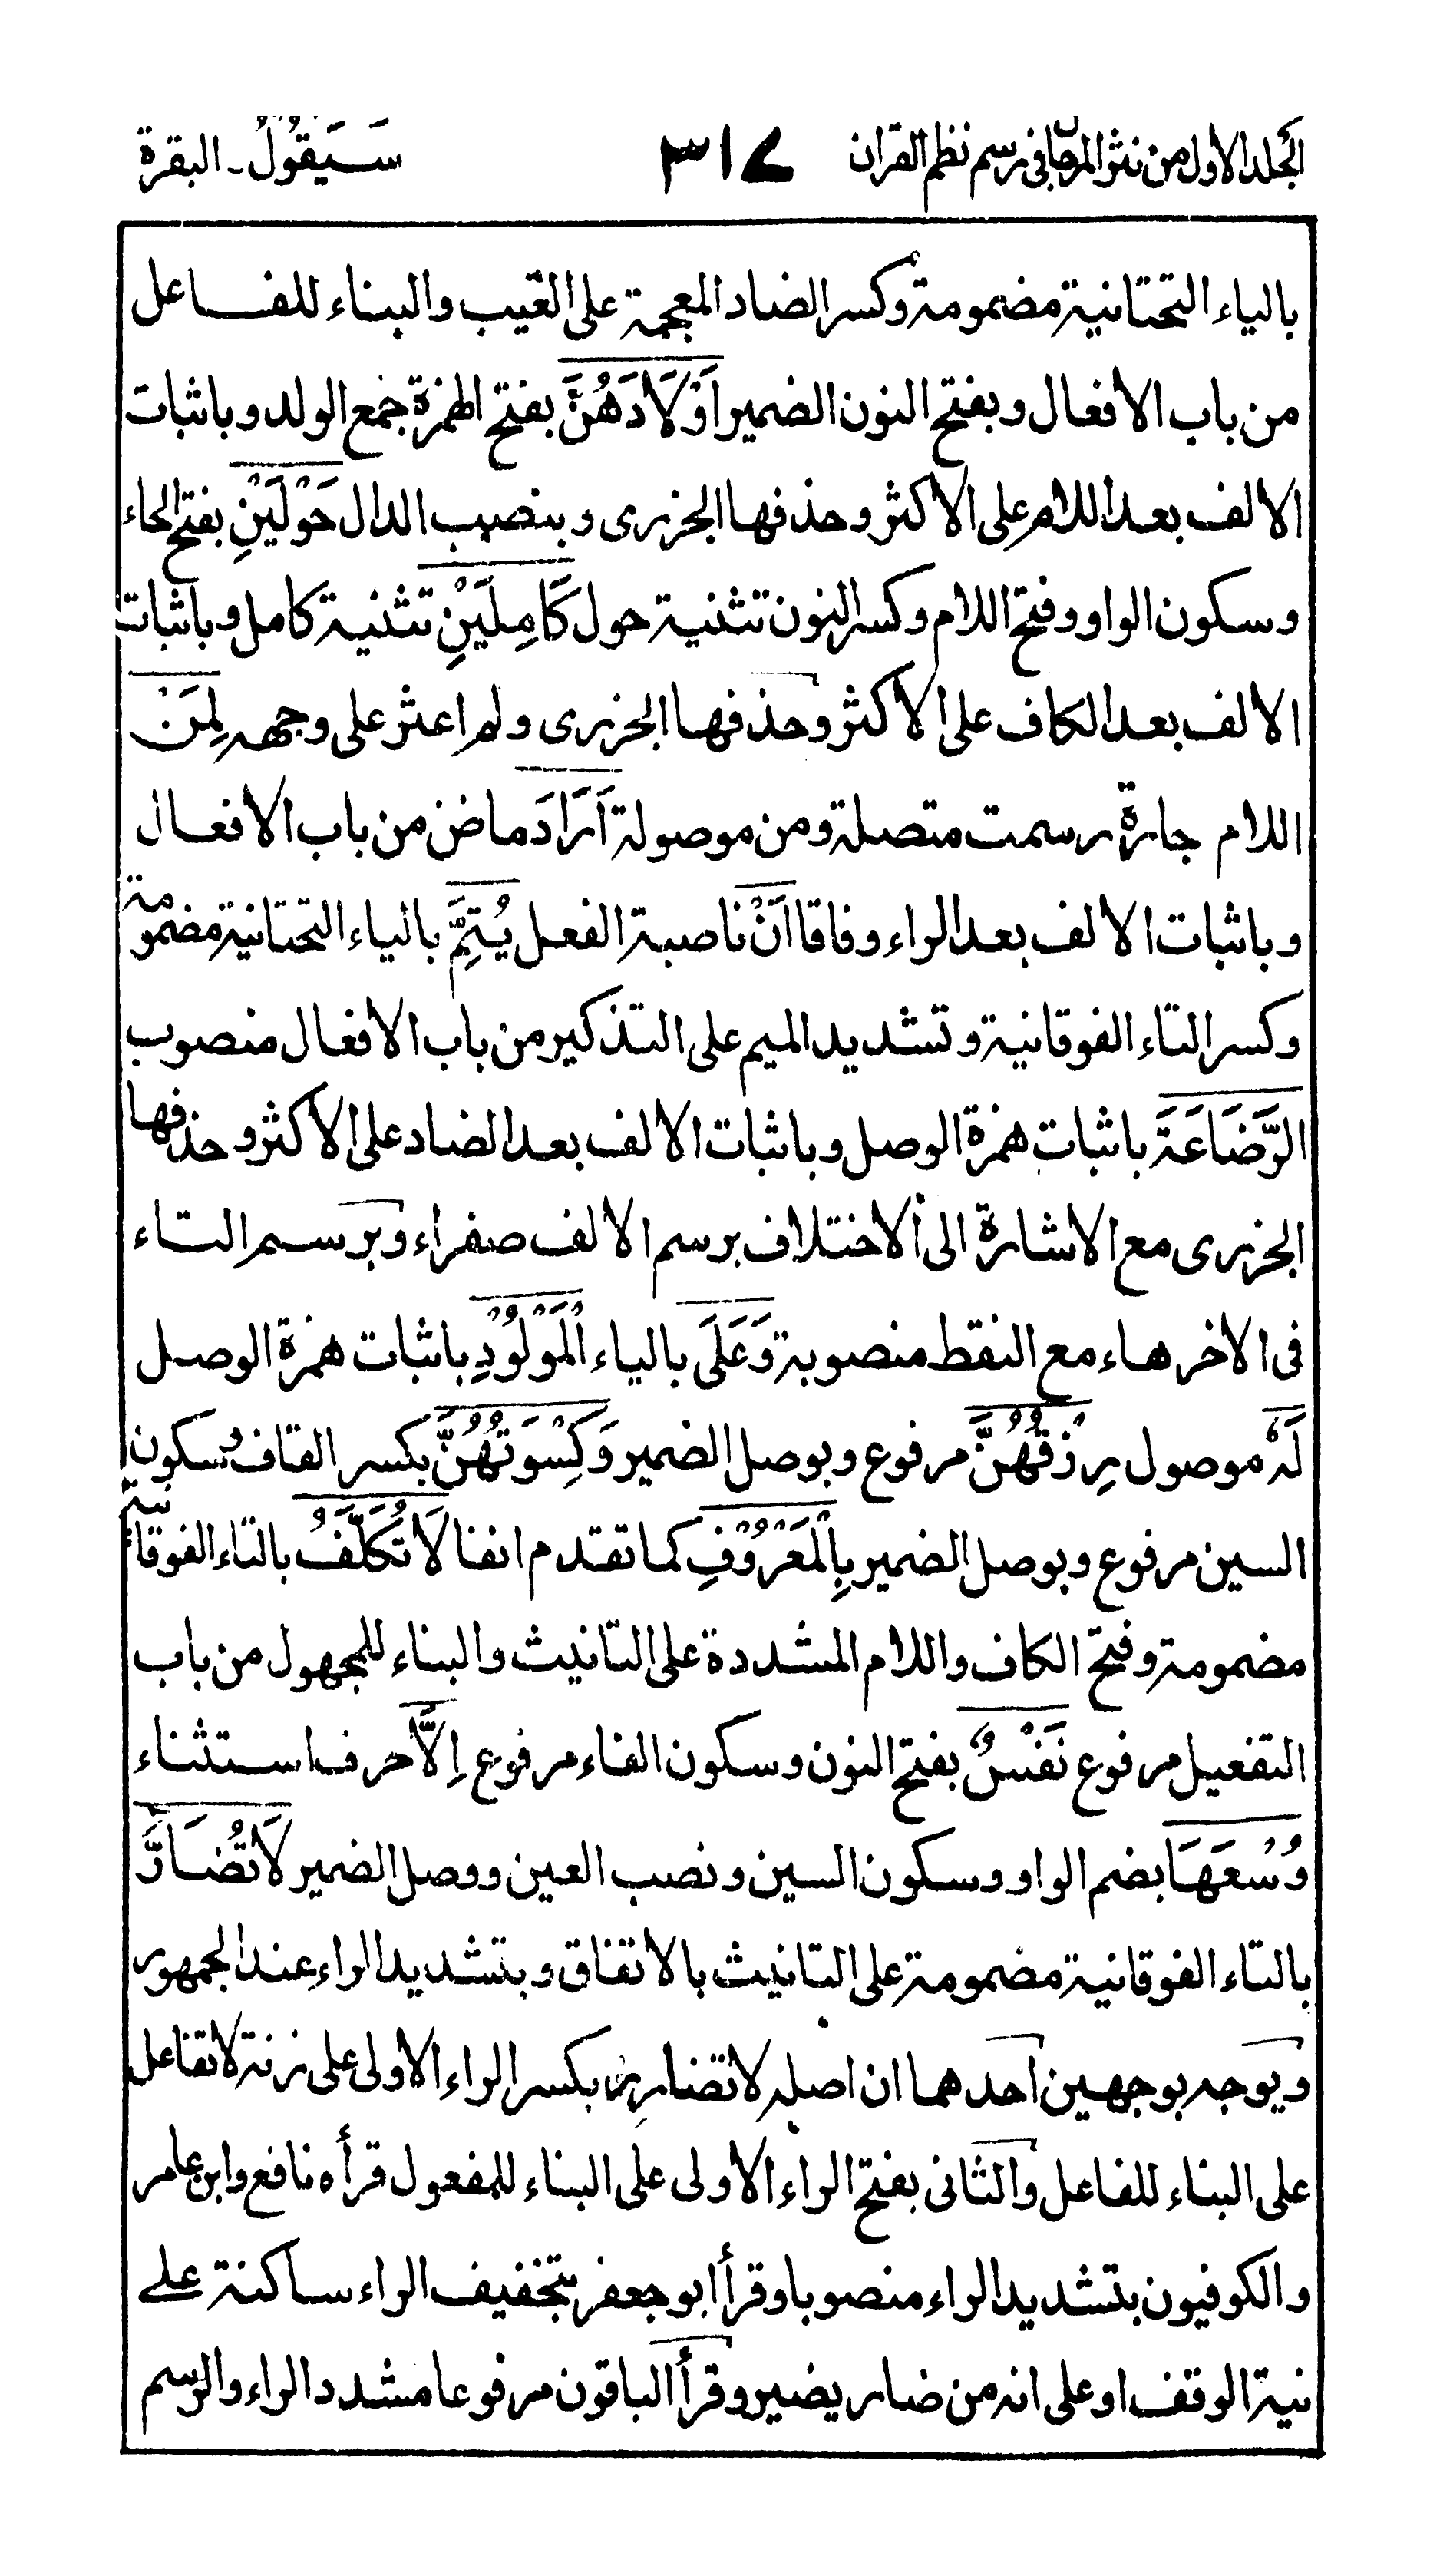 الجلد الاول من نثر المرجان فى رسم نظم القران
٣١٧
سَيَقُوْلُ ـ البقرة
بالياء التحتانية مضمومة وكسر الضاد المعجمة على الغيب والبناء للفاعل
من باب الافعال وبفتح النون الضمير اَوْلَادَهُنَّ بفتح الهمزة جمع الولد وباثبات
الالف بعد اللام على الاكثر وحذفها الجزرى وبنصب الدال حَوْلَيْنِ بفتح الحاء
وسكون الواو وفتح اللام وكسر النون تثنية حول كَامِلَيْنِ تثنية كامل وباثبات
الالف بعد الكاف على الاكثر وحذفها الجزرى ولم اعثر على وجهه لِمَنْ
اللام جارة رسمت متصلة ومن موصولة اَرَادَ ماض من باب الافعال
وباثبات الالف بعد الراء وفاقا اَنْ ناصبة الفعل يُتِمَّ بالياء التحتانية مضمومة
وكسر التاء الفوقانية وتشديد الميم على التذكير من باب الافعال منصوب
الرَّضَاعَةَ باثبات همزة الوصل وباثبات الالف بعد الضاد على الاكثر وحذفها
الجزرى مع الاشارة الى الاختلاف برسم الالف صفراء وبرسم التاء
فى الاخر هاء مع النقط منصوبة وَعَلَى بالياء الْمَوْلُوْدِ باثبات همزة الوصل
لَهٗ موصول رِزْقُهُنَّ مرفوع وبوصل الضمير وَكِسْوَتُهُنَّ بكسر القاف وسكون
السين مرفوع وبوصل الضمير بِالْمَعْرُوْفِ كما تقدم انفا لَا تُكَلَّفُ بالتاء الفوقانية
مضمومة وفتح الكاف واللام المشددة على التانيث والبناء للمجهول من باب
التفعيل مرفوع نَفْسٌ بفتح النون وسكون الفاء مرفوع اِلَّا حرف استثناء
وُسْعَهَا بضم الواو وسكون السين ونصب العين ووصل الضمير لَا تُضَارَّ
بالتاء الفوقانية مضمومة على التانيث بالاتفاق وبتشديد الراء عند الجمهور
ويوجه بوجهين احدهما ان اصله لا تضارِرْ بكسر الراء الاولى على زنة لا تفاعل
على البناء للفاعل والثانى بفتح الراء الاولى على البناء للمفعول قرأه نافع وابن عامر
والكوفيون بتشديد الراء منصوبا وقرأ ابو جعفر بتخفيف الراء ساكنة على
نية الوقف او على انه من ضار يضير وقرأ الباقون مرفوعا مشدد الراء والرسم